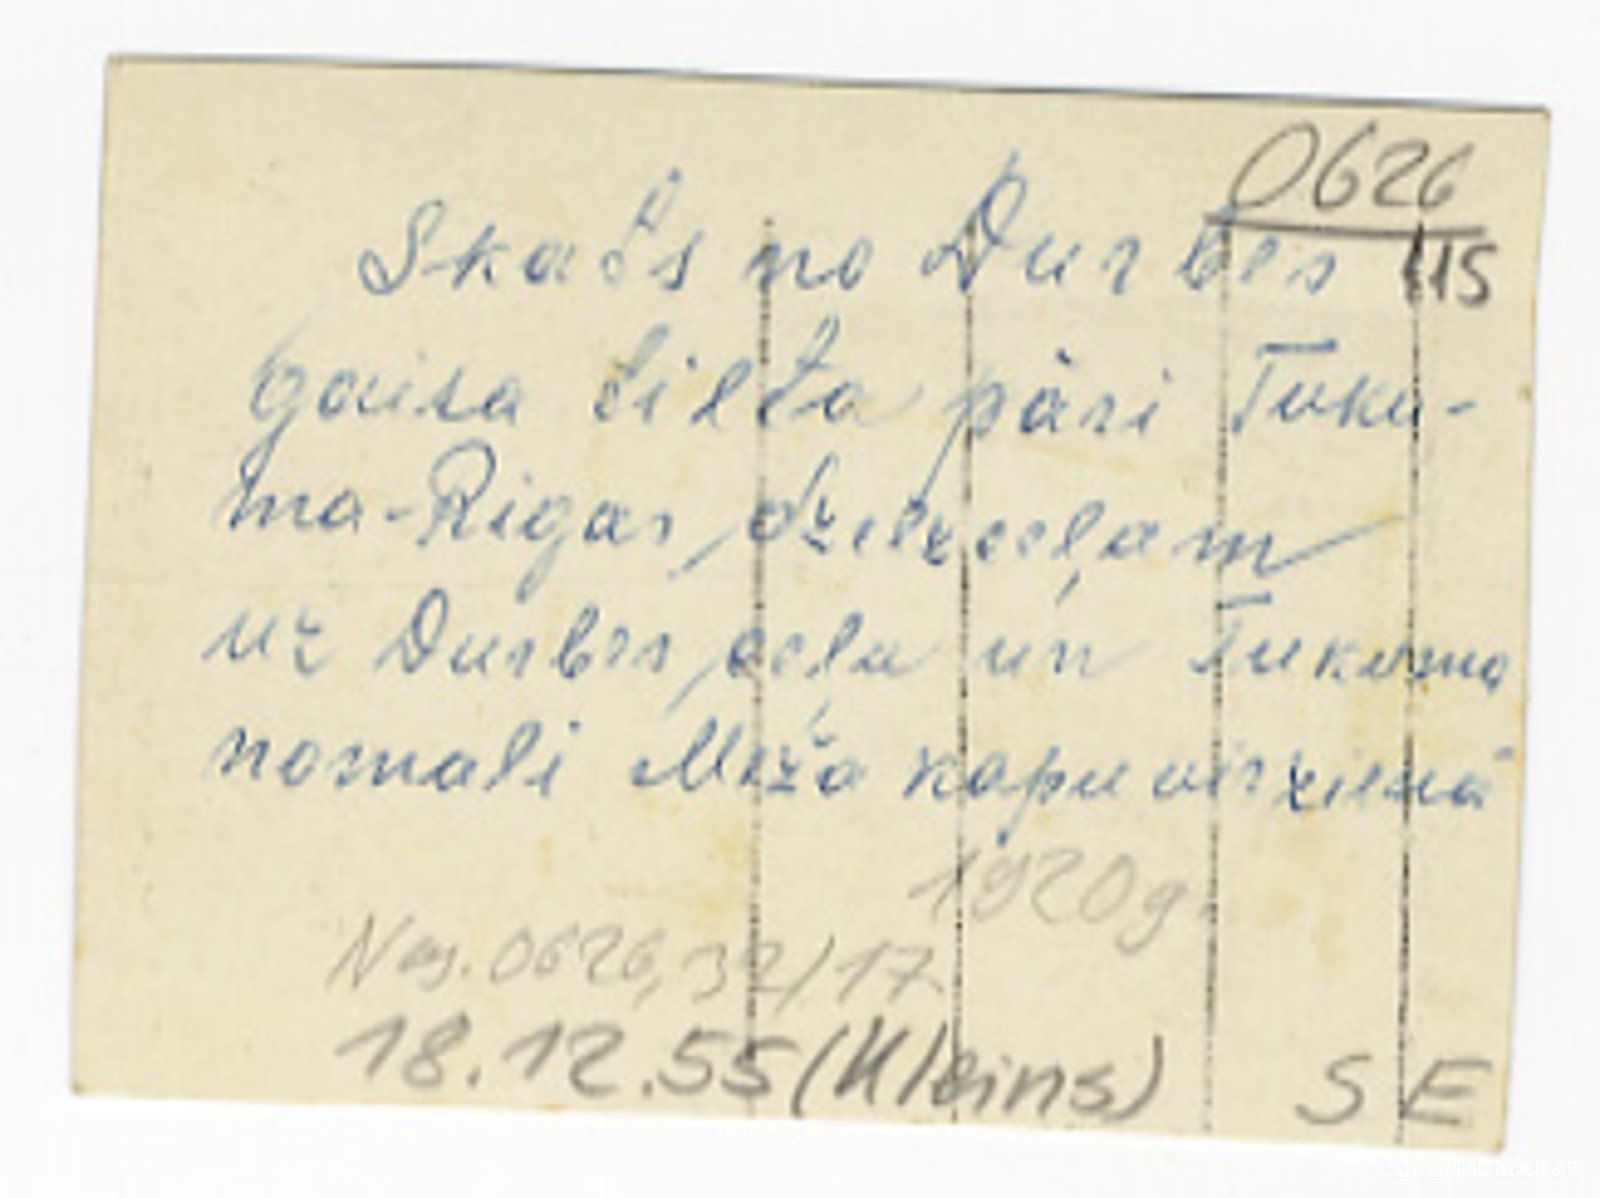 0626
Skats no Durbes 115
gaisa tilta pāri Tuku-
ma-Rigas dzelzceļam
uz Durbes ceļu un Tukuma
nomali Meža kapu virzienā
1920 g.
Neg. 0626, 32/17.
18.12.55 (Kleins) SE